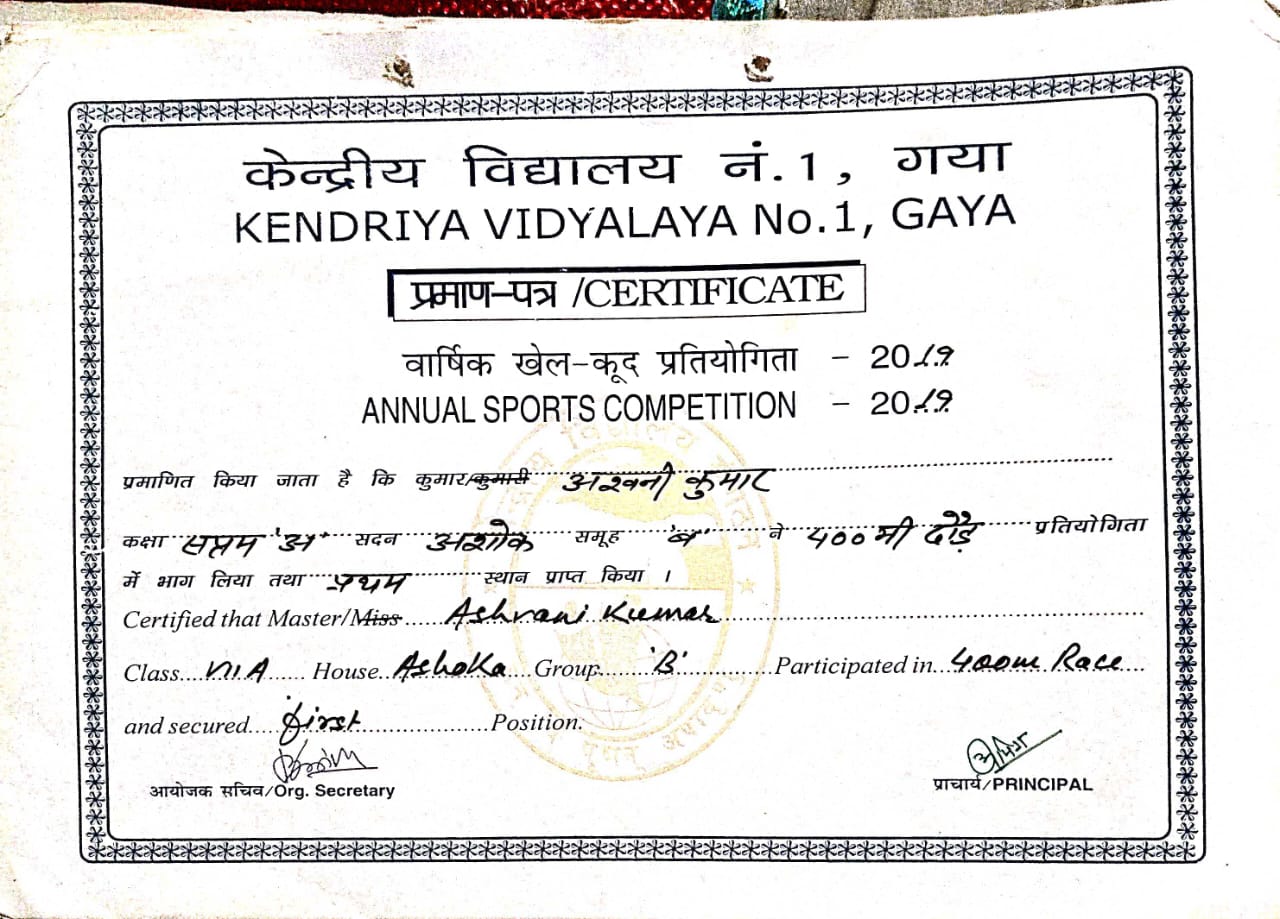 केन्द्रीय विद्यालय नं.1, गया
KENDRIYA VIDYALAYA No.1, GAYA
प्रमाण-पत्र /CERTIFICATE
वार्षिक खेल-कूद प्रतियोगिता - 2019
ANNUAL SPORTS COMPETITION - 2019
प्रमाणित किया जाता है कि कुमार/कुमारी अश्वनी कुमार
कक्षा सप्तम 'अ' सदन अशोक समूह 'ब' ने 400 मी दौड़ प्रतियोगिता
में भाग लिया तथा प्रथम स्थान प्राप्त किया ।
Certified that Master/Miss Ashvani Kumar
Class VII A House Ashoka Group 'B' Participated in 400m Race
and secured first Position.
आयोजक सचिव/Org. Secretary
प्राचार्य/PRINCIPAL